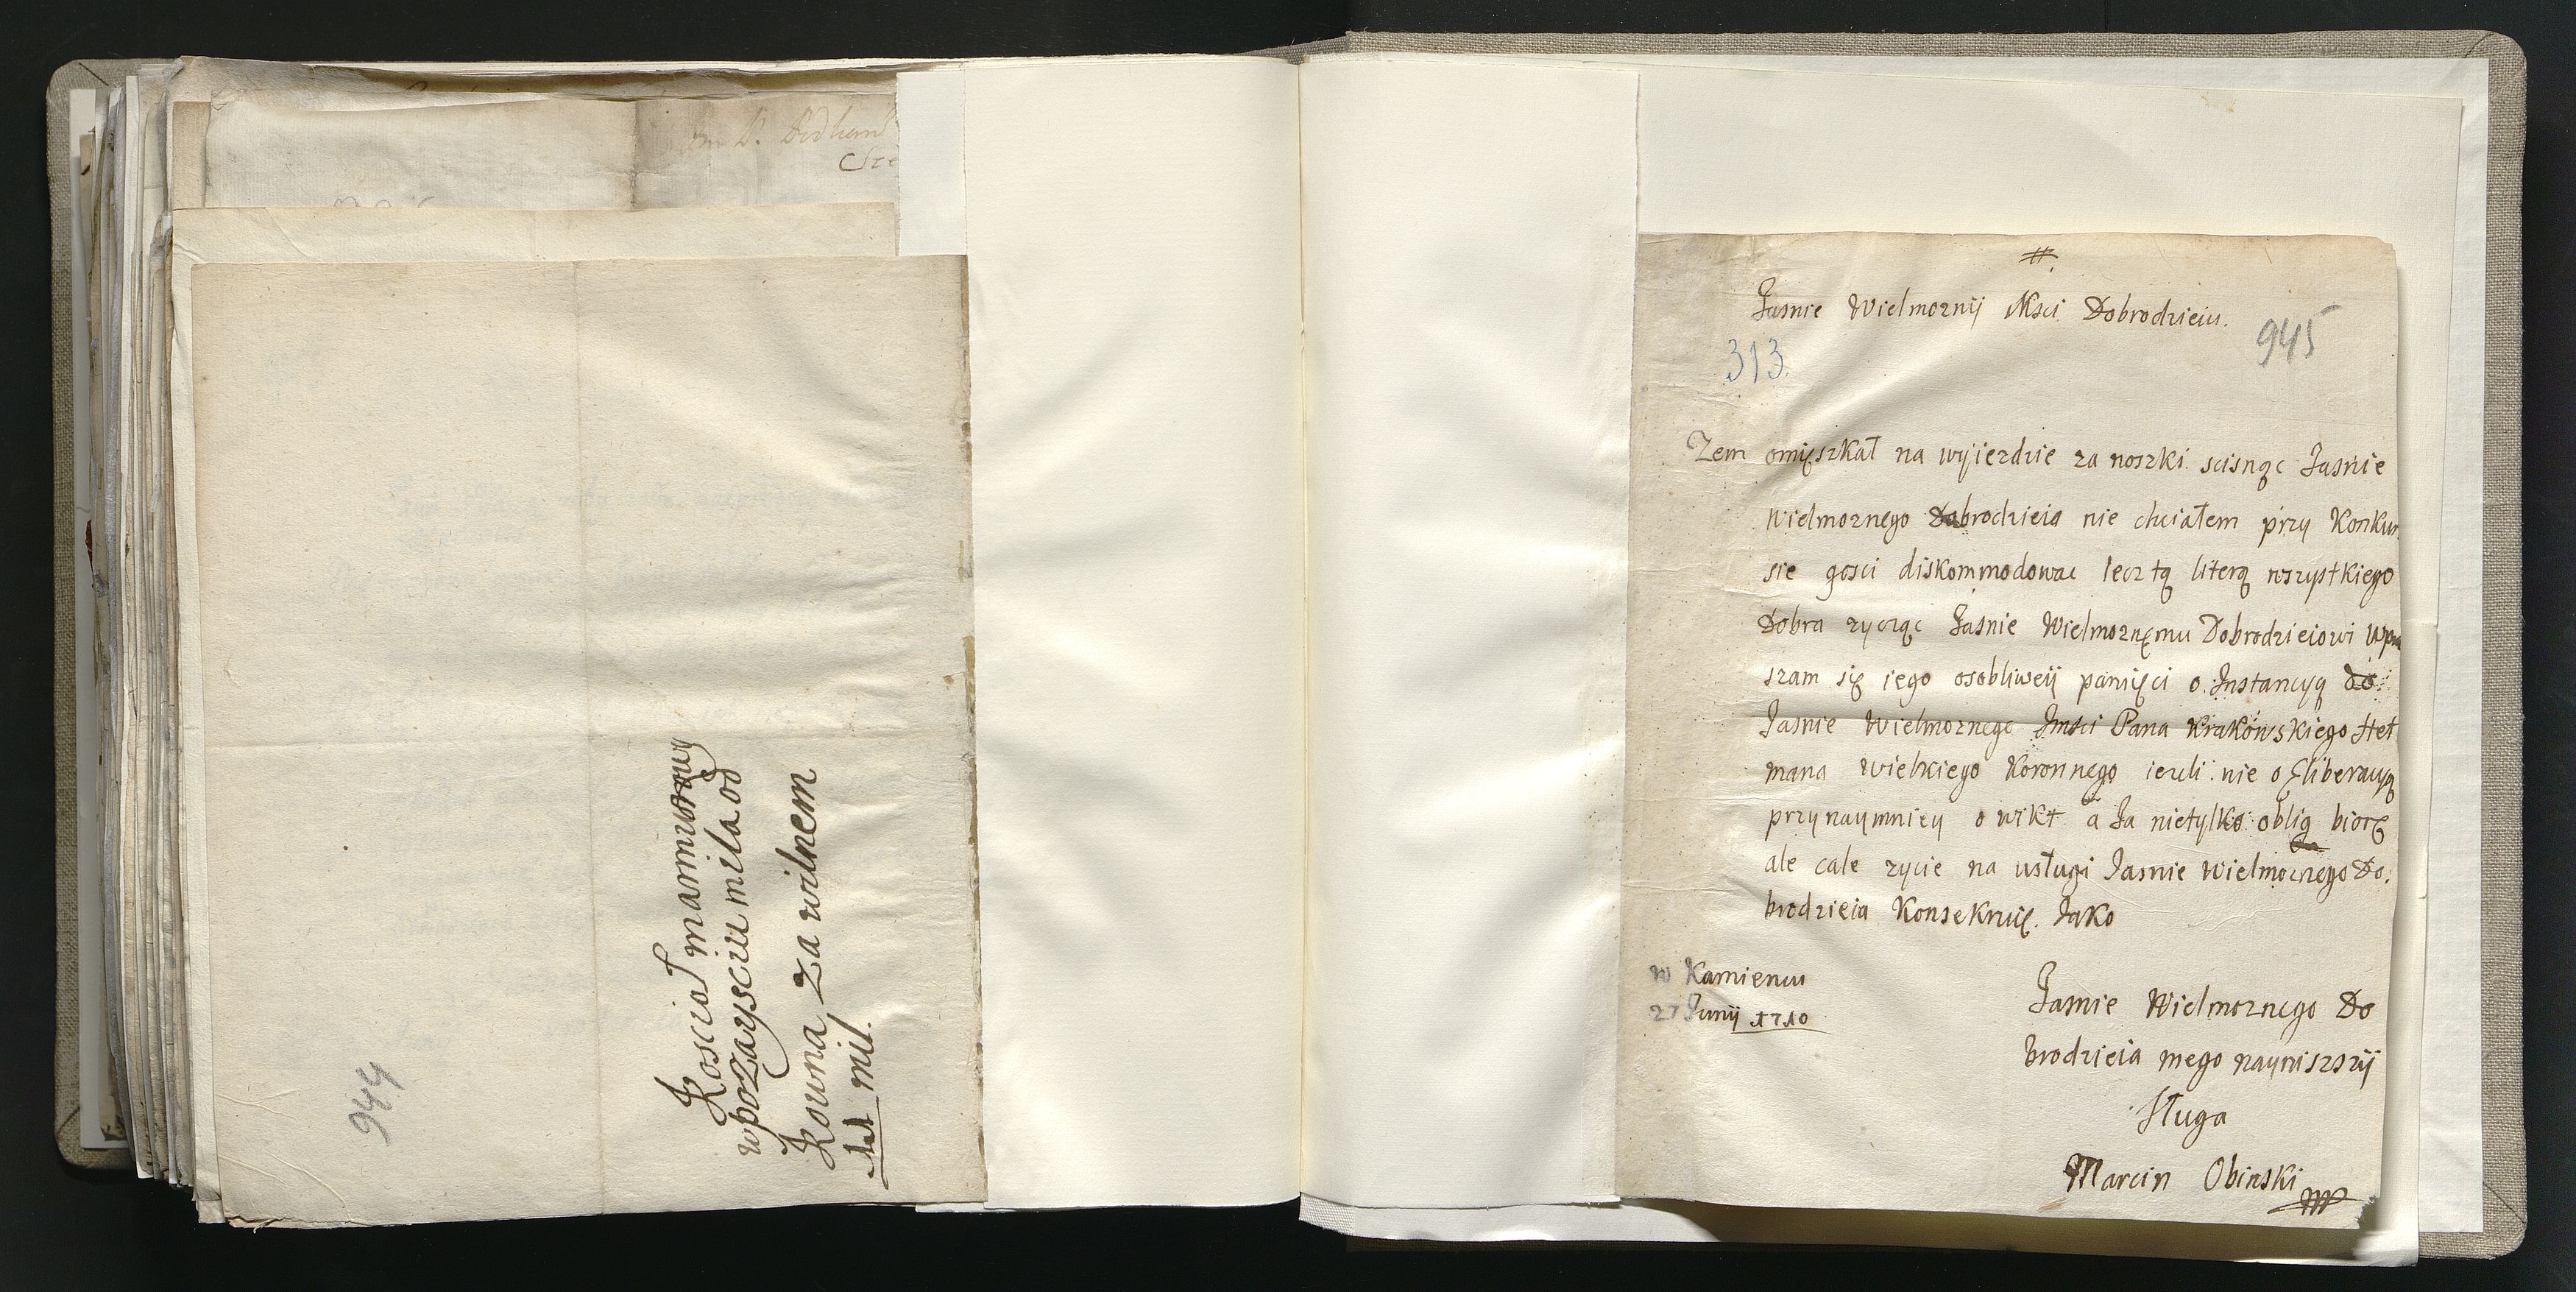 944
Koscioł marmurowy
w pozaysciu mila od
Kowna za wilnem
mil.
#.
Jasnie Wielmoznÿ Msci Dobrodzieiu.
945
313.
Zem omięszkał na wÿiezdzie za noszki scisnąc Jasnie
Wielmoznego Dobrodzieia nie chciałem przy Konkur
sie gosci diskommodowac lecz tą literą wszystkiego
Dobra zycząc Jasnie Wielmoznęmu Dobrodzieiowi wpra
szam się iego osobliweÿ pamięci o Instancyą do
Jasnie Wielmoznego Jmsci Pana Krakówskiego Het
mana Wielkiego Koronnego iezeli nie o Eliberacyą
przynaymniey o wikt a Ja nietylko oblig biorę
ale cale zycie na usługi Jasnie Wielmoznego Do.
brodzieia Konsekruię. Jako
w Kamiencu
27 Junÿ 1710
Jasnie Wielmoznego Do
brodzieia mego nayniszszÿ
Sługa
Marcin Obinski
mp